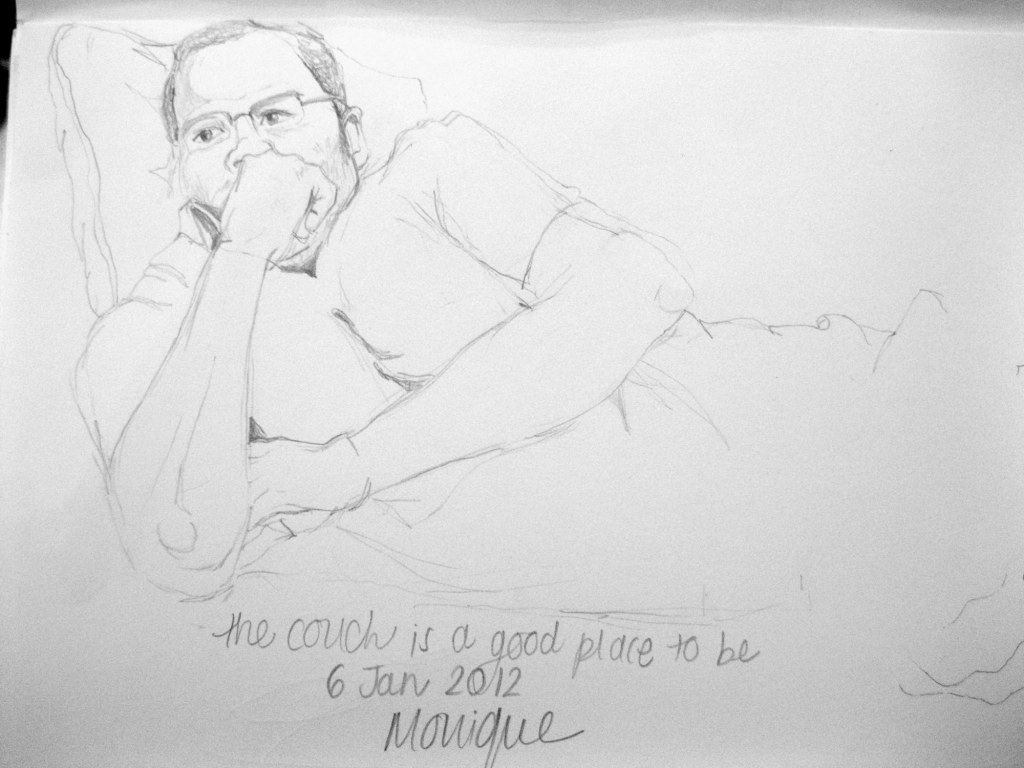 the couch is a good place to be
6 Jan 2012
Monique